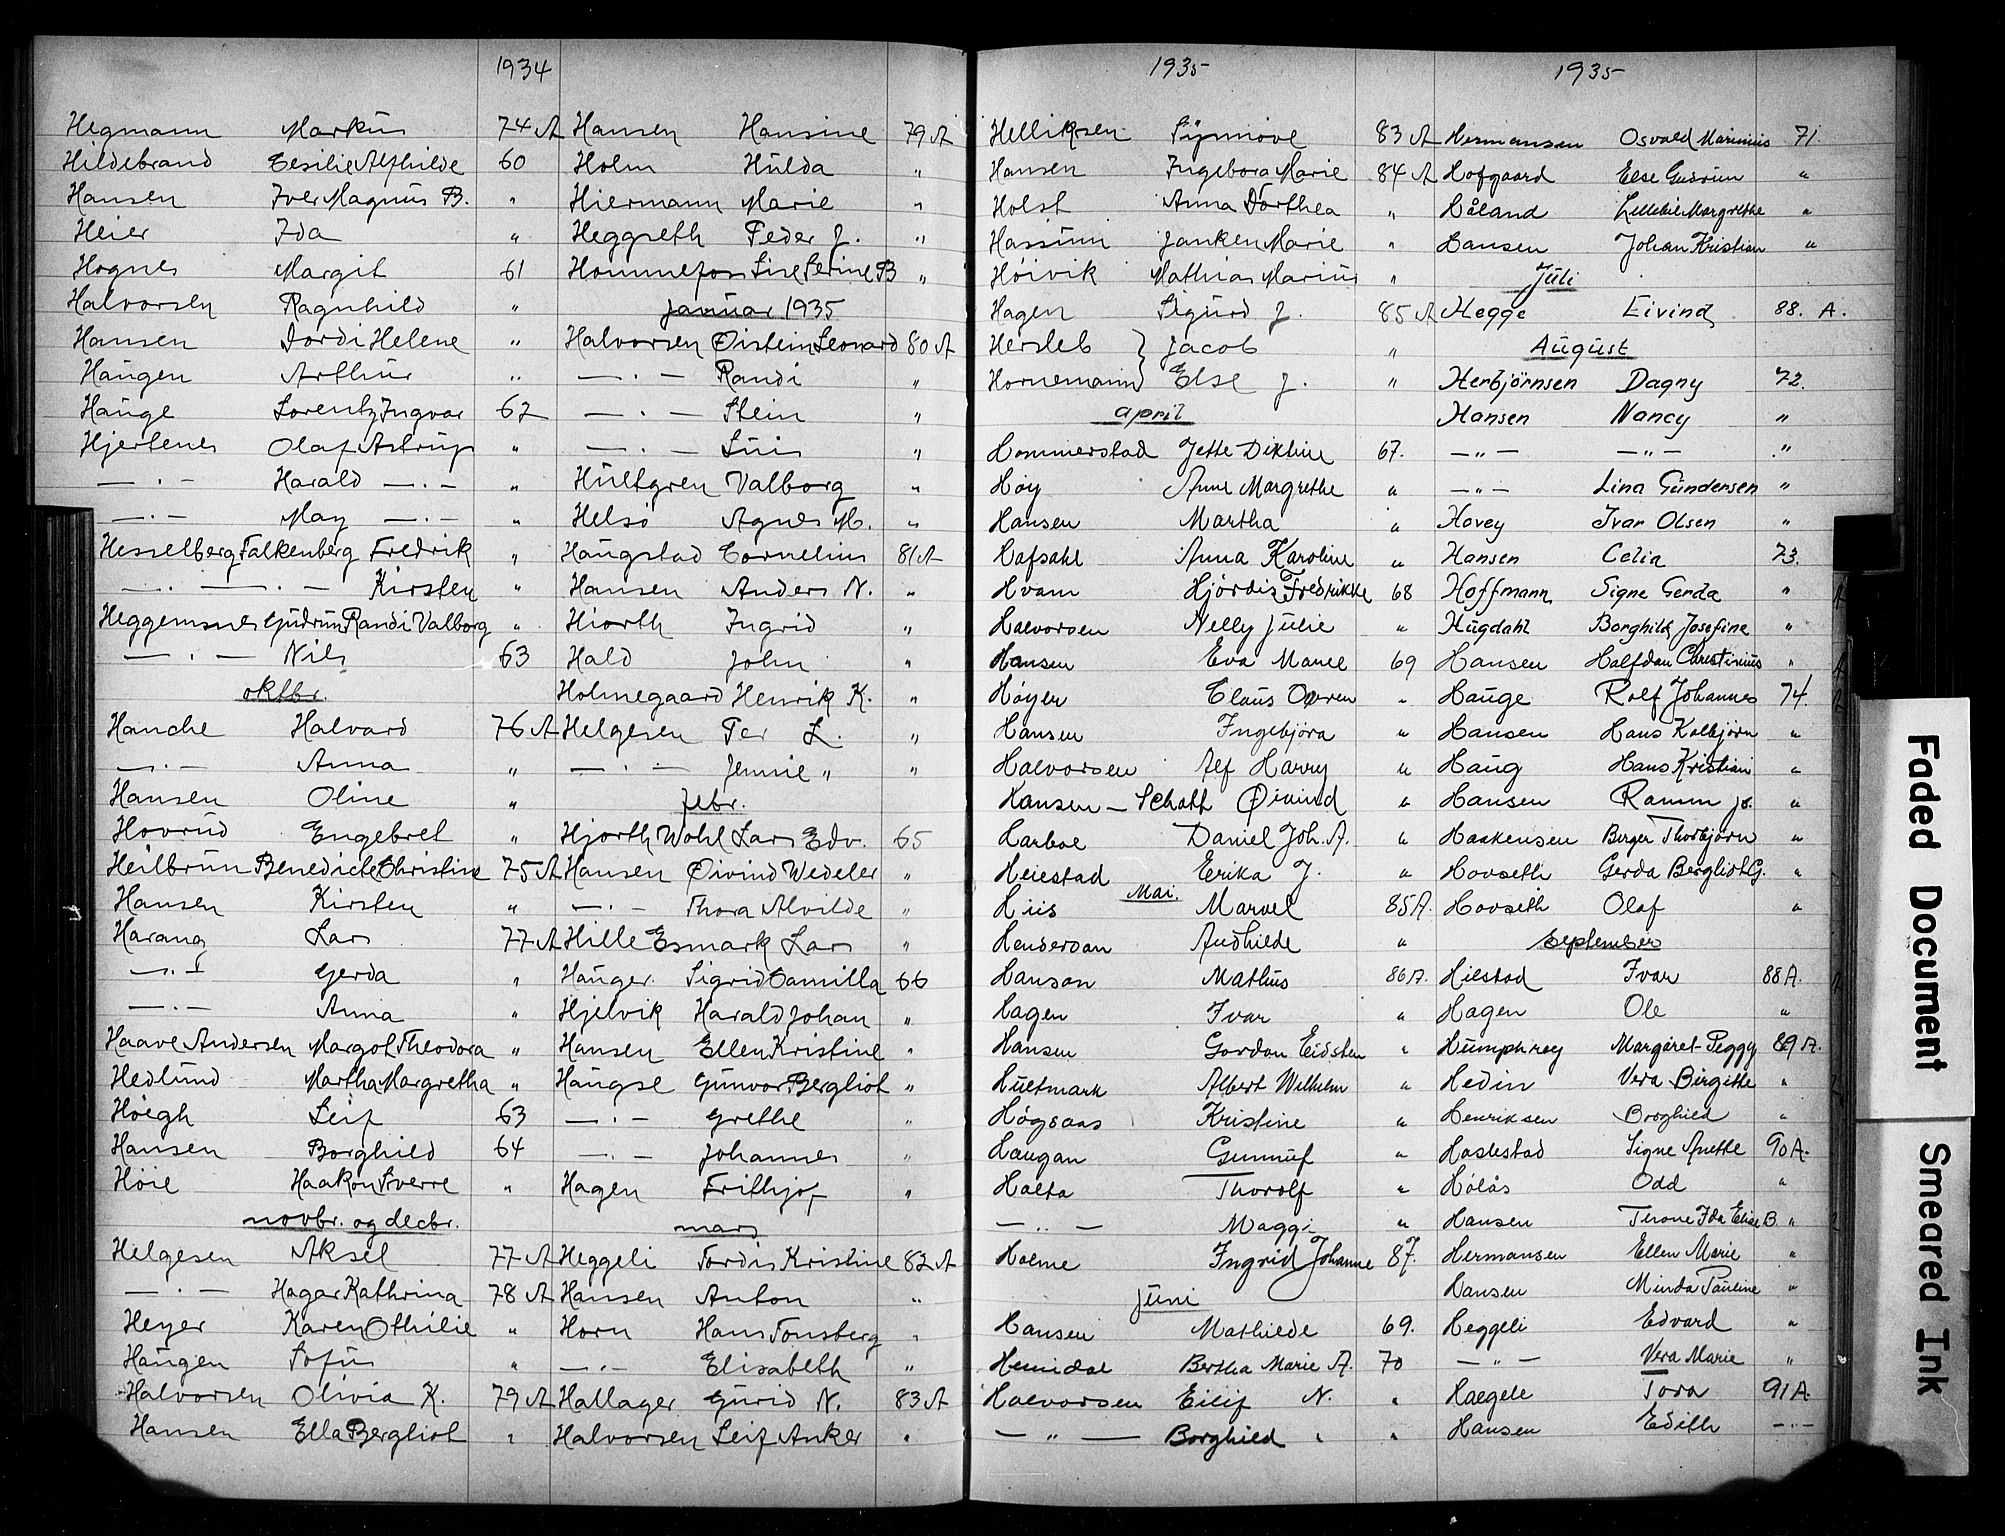 1934
Hegmann Markus 74 A
Hildebrand Cesilie Alfhilde 60
Hansen Iver Magnus B. "
Heier Ida "
Hognes Margit 61
Halvorsen Ragnhild "
Hansen Dordi Helene "
Haugen Arthur "
Hauge Lorentz Ingvar 62
Hjertenes Olaf Astrup "
— · — Harald — · — "
— · — May — · — "
Hesselberg Falkenberg Fredrik "
— · — — · — Kirsten "
Heggemsnes Gudrun Randi Valborg "
— · — Nils 63
oktbr.
Hanche Halvard 76 A
— · — Anna "
Hansen Oline "
Hovrud Engebret "
Heilbrun Benedicte Christine 75 A
Hansen Kirsten "
Harang Lars 77 A
— · — Gerda "
— · — Anna "
Haave Andersen Margot Theodora "
Hedlund Martha Margretha "
Höegh Leif 63
Hansen Borghild 64
Höie Haakon Sverre "
novbr. og decbr.
Helgesen Aksel 77 A
— · — Hagar Kathrina 78 A
Heyer Karen Othilie "
Haugen Sofus "
Halvorsen Olivia K. 79 A
Hansen Ella Bergliot "
Hansen Hansine 79 A
Holm Hulda "
Hiermann Marie "
Heggseth Peder J. "
Hommefoss Lise Serine B "
januar 1935
Halvorsen Øistein Leonard 80 A
— · — Randi "
— · — Stein "
— · — Siri "
Hultgren Valborg "
Helsö Agnes M. "
Haugstad Cornelius 81 A
Hansen Anders N. "
Hiorth Ingrid "
Hald John "
Holmegaard Henrik K. "
Helgesen Per L. "
— · — Jennie " "
febr.
Hjorth Wohl Lars Edv. 65
Hansen Øivind Wedeler "
— · — Thora Alvilde "
Hille Esmark Lars "
Hauger Sigrid Camilla 66
Hjelvik Harald Johan "
Hansen Ellen Kristine "
Haugse Gunvor Bergliot "
— · — Grethe "
— · — Johannes "
Hagen Frithjof "
mars
Heggeli Tordis Kristine 82 A
Hansen Anton "
Horn Hans Tønsberg "
— · — Elisabeth "
Hallager Gurid N. 83 A
Halvorsen Leif Anker "
1935
Helliksen Synnøve 83 A
Hansen Ingeborg Marie 84 A
Holst Anna Dorthea "
Hassum Janken Marie "
Höivik Mathias Marius "
Hagen Sigurd J. 85 A
Hersleb } Jacob "
Hornemann } Else J. "
april
Hommerstad Jette Dikkine 67.
Høy Anne Margrethe "
Hansen Martha "
Hafsahl Anna Karoline "
Hvam Hjördis Fredrikke 68
Halvorsen Nelly Julie "
Hansen Eva Marie 69
Høyer Claus Owren "
Hansen Ingebjöra "
Halvorsen Alf Harry "
Hansen — Schøtt Øivind "
Harboe Daniel Joh. A. "
Heiestad Erika J. "
Mai.
Hiis Marvel 85 A.
Henderson Audhilde "
Hanson Mathus 86 A.
Hagen Ivar "
Hansen Gordon Eidsten "
Hultmark Albert Wilhelm "
Høgsaas Kristine "
Haugan Gunnuf "
Holta Thorolf "
— " — Maggi "
Holme Ingrid Johanne 87.
juni
Hansen Mathilde 69.
Hemidal Bertha Marie A. 70
Halvorsen Eilif N. "
— " — Borghild " "
1935
Hermansen Osvald Marinius 71.
Hofgaard Else Gudrun "
Håland Lillebil Margrethe "
Hansen Johan Kristian "
Juli
Hegge Eivind 88. A.
August
Herbjörnsen Dagny 72.
Hansen Nancy "
— " — — " — "
— " — Lina Gundersen "
Hovey Ivar Olsen "
Hansen Celia 73.
Hoffmann Signe Gerda "
Hugdahl Borghild Josefine "
Hansen Halfdan Christinius "
Hauge Rolf Johannes 74.
Hansen Hans Kolbjørn "
Haug Hans Kristian "
Hansen Ramm jo. "
Haakensen Birger Thorbjørn "
Hovseth Gerda Bergliot G. "
Hovseth Olaf "
September
Hilstad Ivar 88 A.
Hagen Ole "
Humphrey Margaret-Peggy 89 A.
Hedin Vera Birgitte "
Henriksen Borghild "
Haslestad Signe Anette 90 A.
Hölås Odd "
Hansen Throne Ida Elise B. "
Hermansen Ellen Marie "
Hansen Minda Pauline "
Heggeli Edvard "
— " — Vera Marie "
Haegele Tora 91 A.
Hansen Edith — " —
Faded Document
Smeared Ink